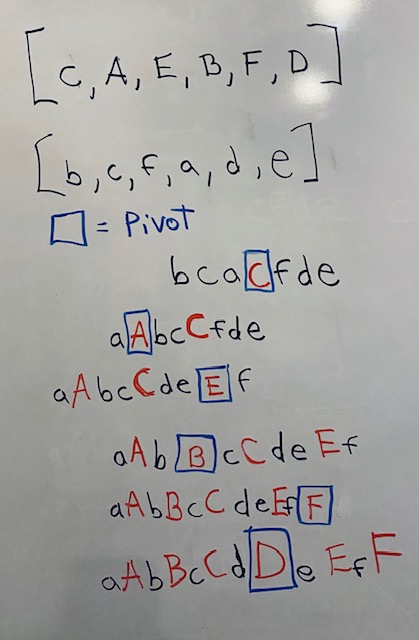 [C, A, E, B, F, D]
[b, c, f, a, d, e]
= Pivot
bcaCfde
aAbcCfde
aAbcCdeEf
aAbBcCdeEf
aAbBcCdeEfF
aAbBcCdDeEfF